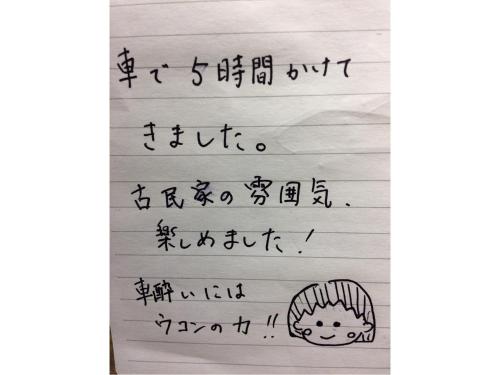 車で5時間かけて
きました。
古民家の雰囲気、
楽しめました!
車酔いには
ウコンの力!!